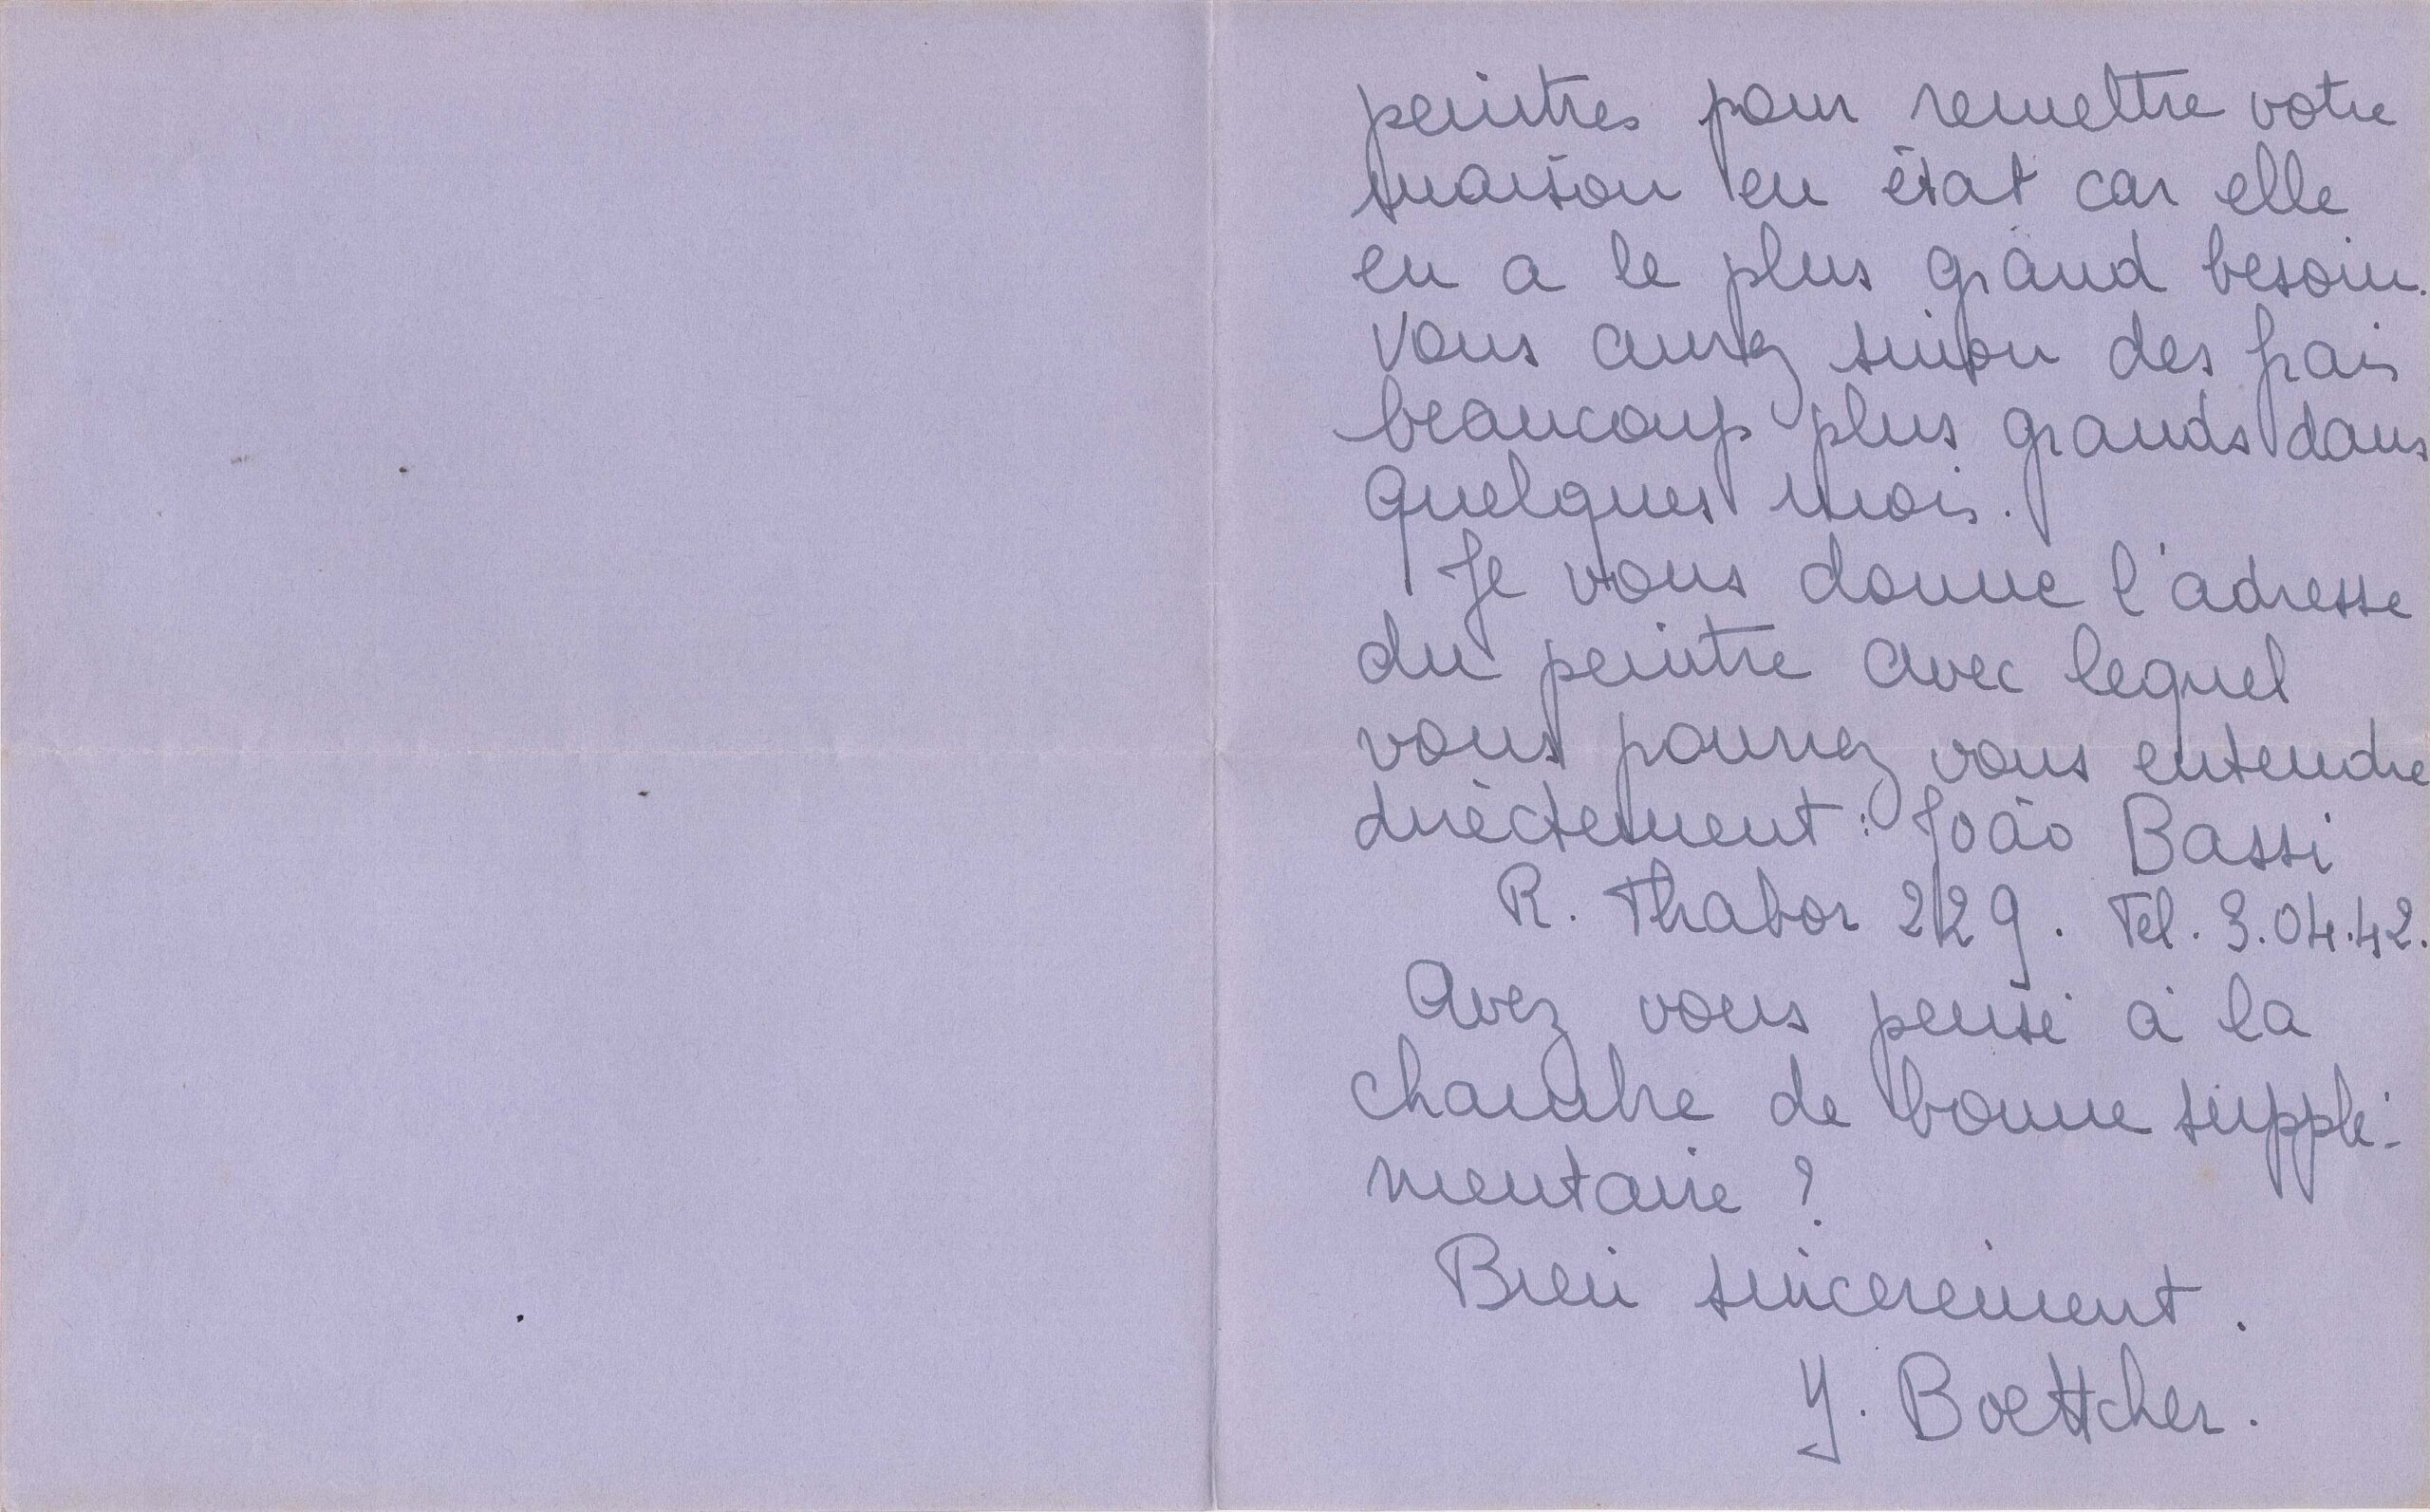 peintres pour remettre votre
maison en état car elle
en a le plus grand besoin.
Vous aurez sinon des frais
beaucoup plus grands dans
quelques mois.
Je vous donne l'adresse
du peintre avec lequel
vous pourrez vous entendre
directement : João Bassi
R. Thabor 229. Tel. 3.04.42.
Avez vous pensé à la
chambre de bonne supplé-
mentaire ?
Bien sincerement.
Y. Boettcher.